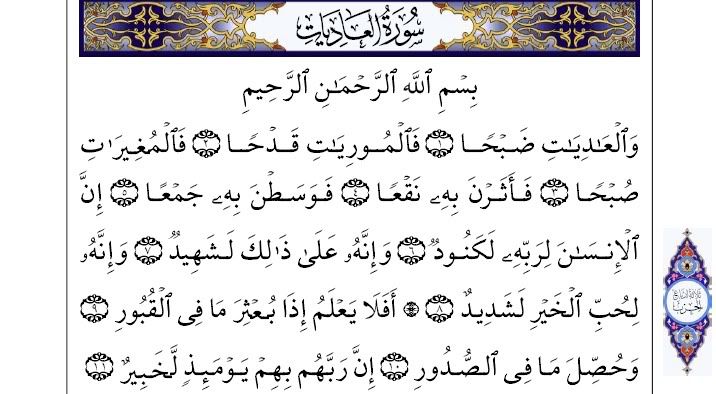 سُورَةُ العَادِيَاتِ
بِسۡمِ ٱللَّهِ ٱلرَّحۡمَٰنِ ٱلرَّحِيمِ
وَٱلۡعَٰدِيَٰتِ ضَبۡحٗا ١ فَٱلۡمُورِيَٰتِ قَدۡحٗا ٢ فَٱلۡمُغِيرَٰتِ
صُبۡحٗا ٣ فَأَثَرۡنَ بِهِۦ نَقۡعٗا ٤ فَوَسَطۡنَ بِهِۦ جَمۡعًا ٥ إِنَّ
ٱلۡإِنسَٰنَ لِرَبِّهِۦ لَكَنُودٞ ٦ وَإِنَّهُۥ عَلَىٰ ذَٰلِكَ لَشَهِيدٞ ٧ وَإِنَّهُۥ
لِحُبِّ ٱلۡخَيۡرِ لَشَدِيدٌ ٨ ۞ أَفَلَا يَعۡلَمُ إِذَا بُعۡثِرَ مَا فِي ٱلۡقُبُورِ ٩
وَحُصِّلَ مَا فِي ٱلصُّدُورِ ١٠ إِنَّ رَبَّهُم بِهِمۡ يَوۡمَئِذٖ لَّخَبِيرُۢ ١١
ثلاثة أرباع
الحزب